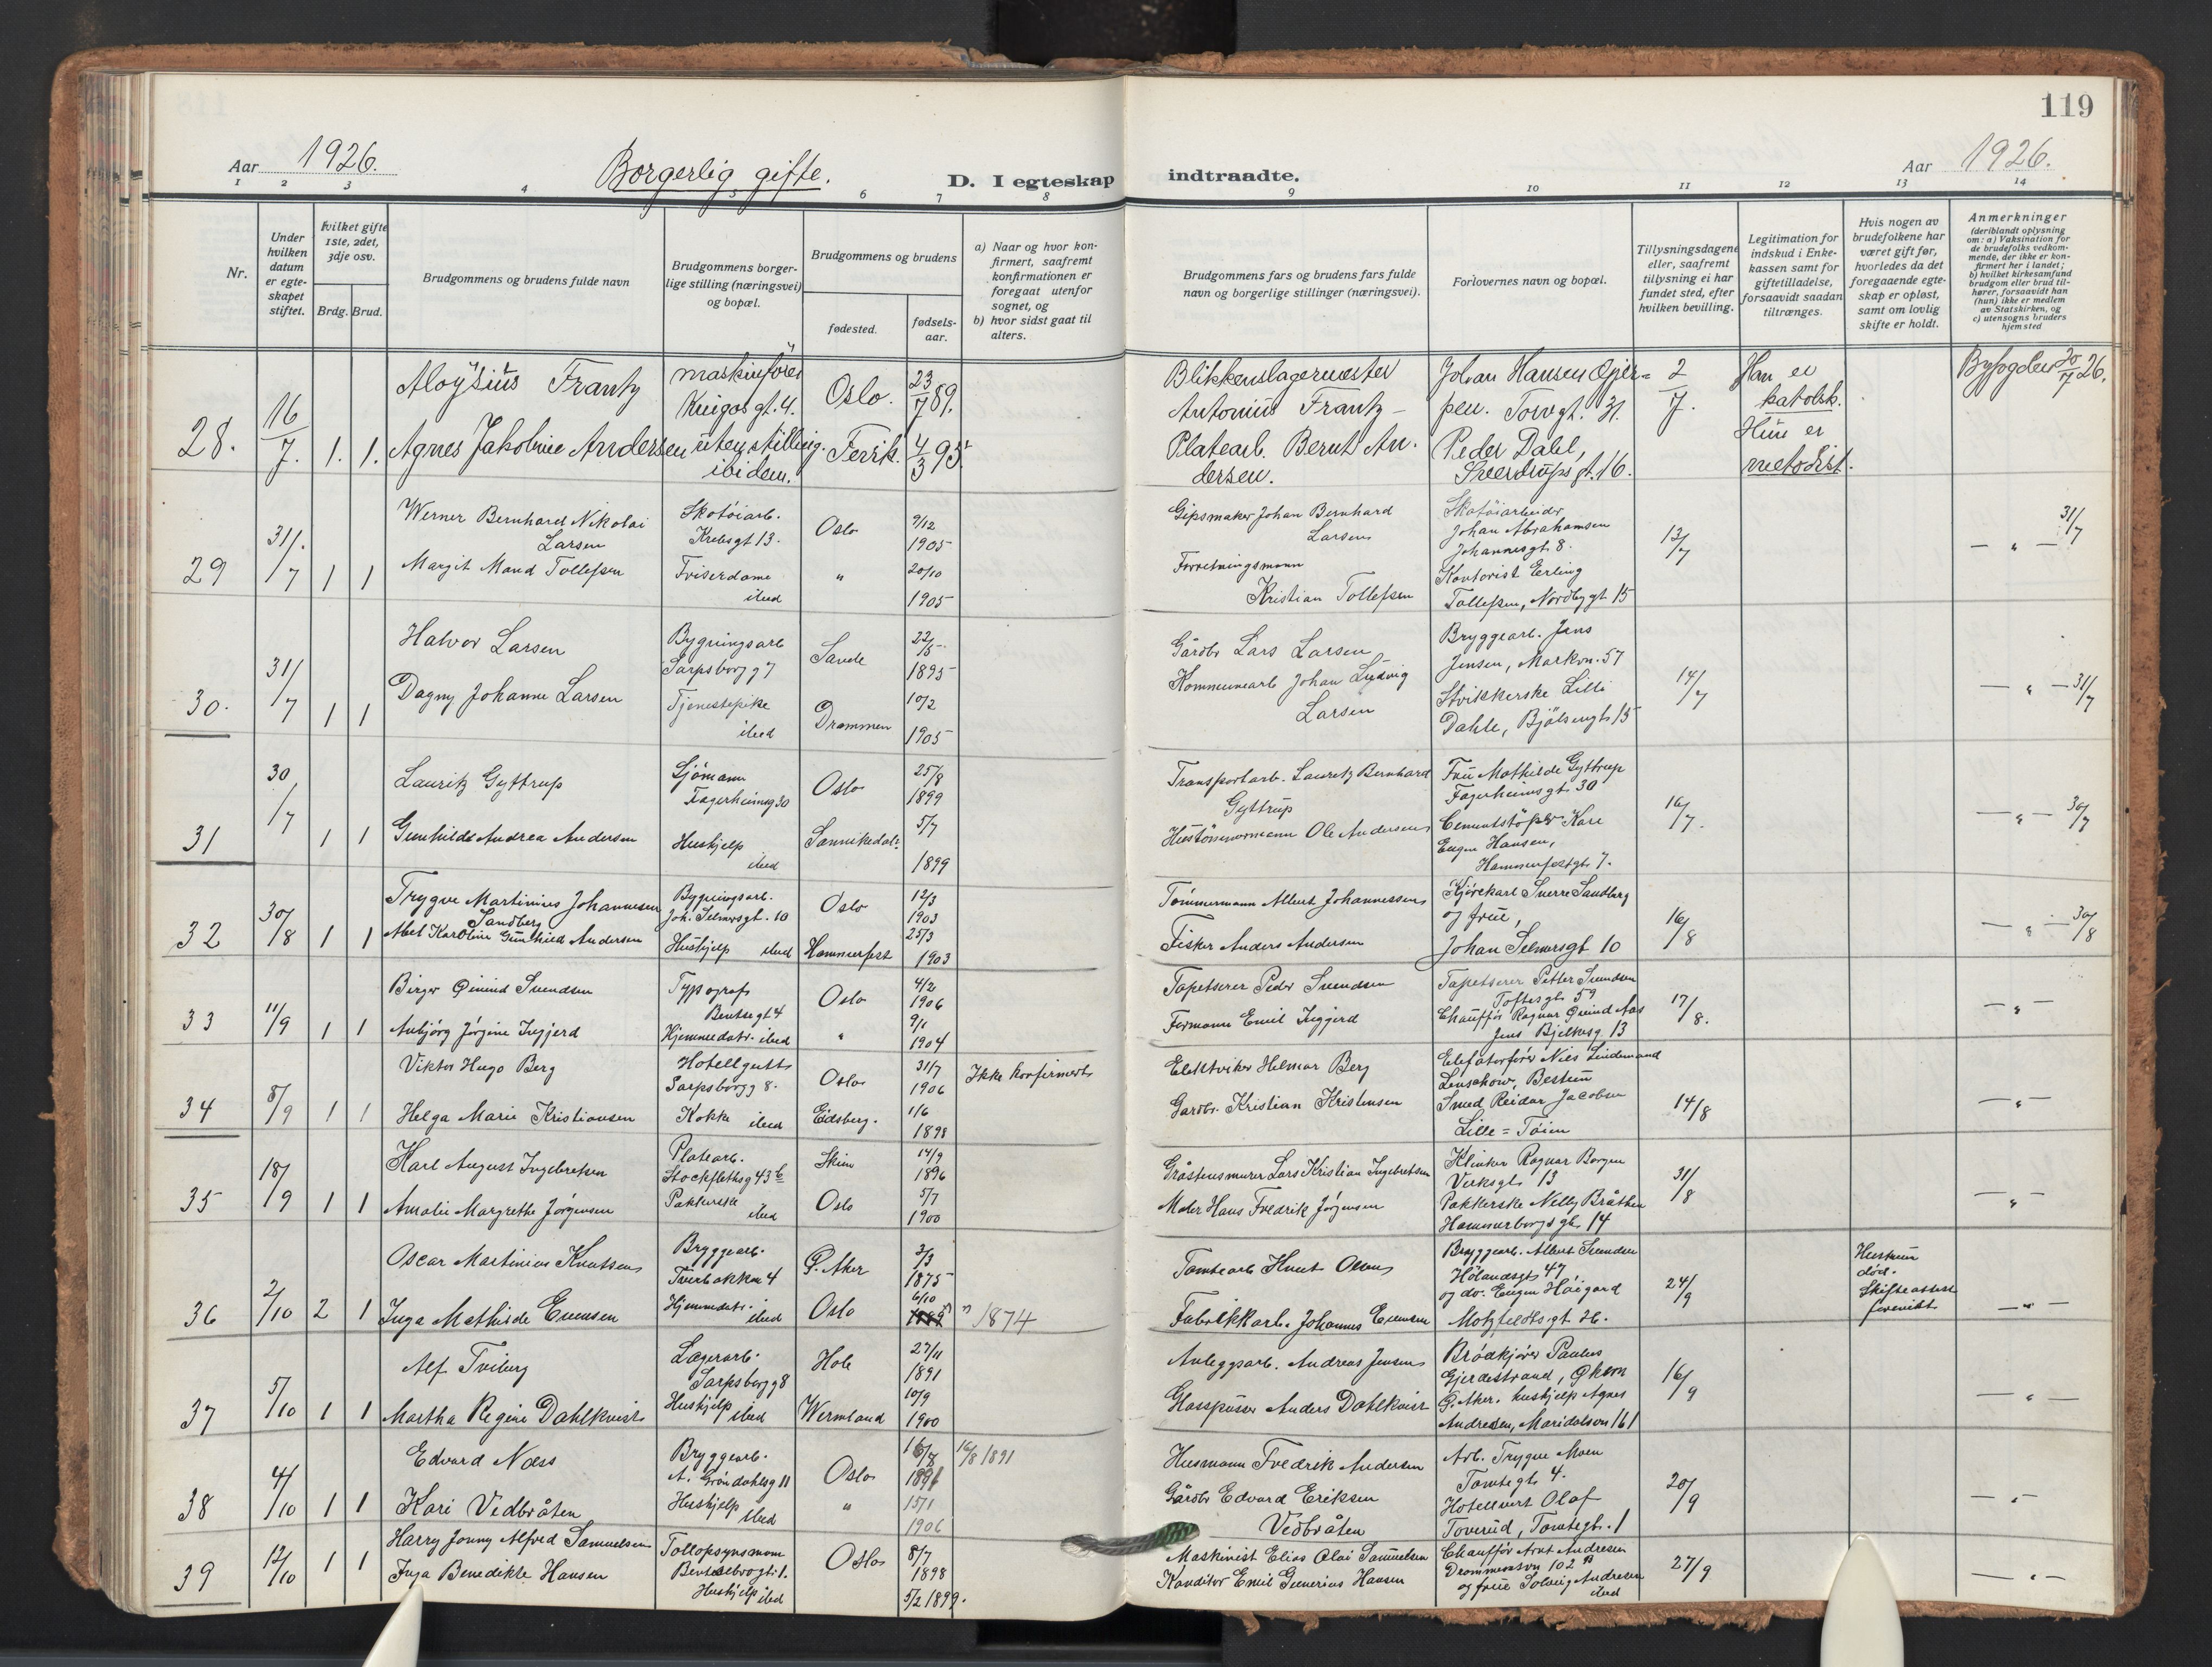 119
Aar 1926.
Borgerlig gifte.
D. I egteskap indtraadte.
Aar 1926.
1 2 3 4 5 6 7 8 9 10 11 12 13 14
Nr.
Under hvilken datum er egteskapet stiftet.
Hvilket gifte 1ste, 2det, 3dje osv.
Brdg. Brud.
Brudgommens og brudens fulde navn
Brudgommens borgerlige stilling (næringsvei) og bopæl.
Brudgommens og brudens
fødested.
fødselsaar.
a) Naar og hvor konfirmert, saafremt konfirmationen er foregaat utenfor sognet, og
b) hvor sidst gaat til alters.
Brudgommens fars og brudens fars fulde navn og borgerlige stillinger (næringsvei).
Forlovernes navn og bopæl.
Tillysningsdagene eller, saafremt tillysning ei har fundet sted, efter hvilken bevilling.
Legitimation for indskud i Enkekassen samt for giftetilladelse, forsaavidt saadan tiltrænges.
Hvis nogen av brudefolkene har været gift før, hvorledes da det foregaaende egteskap er opløst, samt om lovlig skifte er holdt.
Anmerkninger (deriblandt oplysning om: a) Vaksination for de brudefolks vedkommende, der ikke er konfirmert her i landet; b) hvilket kirkesamfund brudgom eller brud tilhører, forsaavidt han (hun) ikke er medlem av Statskirken, og c) utensogns bruders hjemsted
28. 16/7. 1. 1.
Aloÿsius Frantz
maskinfører
gt. 4.
Oslo. 23/7 89.
Blikkenslagermester Antonius Frantz -
Johan Hansen
Torvgt. 31.
2/7.
Han er katolsk.
Byfogden 20/7 26.
Agnes Jakobine Andersen
uten stilling. ibidem.
4/3 95.
Platearb. Bernt Andersen.
Peder Dahl, Sverdrups gt. 16.
Hun er metodist.
29 31/7 1 1
Werner Bernhard Nikolai Larsen
Skotøiarb. Krebsgt 13.
Oslo 9/12 1905
Gipsmaker Johan Bernhard Larsen
Skotøiarbeider Johan Abrahamsen Johannesgt. 8.
13/7
— " — 31/7
Margit Maud Tollefsen
Friserdame ibid
" 20/10 1905
Forretningsmann Kristian Tollefsen
Kontorist Erling Tollefsen, Nordbygt. 15
30. 31/7 1 1
Halvor Larsen
Bygningsarb Sarpsborg g 7
Sande 22/5 1895
Gårdbr Lars Larsen
Bryggearb. Jens Jensen, Markvn. 57
14/7
— " — 31/7
Dagny Johanne Larsen
Tjenestepike ibid
Drammen 10/2 1905
Kommunearb Johan Ludvig Larsen
Strikkerske Lilli Dahle, Bjølsengt. 15
31 30/7 1 1
Lauritz Gyttrup
Sjømann Fagerheimsg 30
Oslo 25/8 1899
Transportarb. Lauretz Bernhard Gyttrup
Fru Mathilde Gyttrup Fagerheimsgt. 30
16/7.
— " — 30/7
Gunhilde Andrea Andersen
Hushjelp ibid
Sannikedal. 5/7 1899
Hustømmermann Ole Andersen
Cementstøper Kare Eugen Hansen, Hammerfestgt. 7.
32 30/8 1 1
Trygve Martinius Johannesen Sandberg
Bygningsarb. Joh. Selmersgt. 10
Oslo 12/3 1903
Tømmermann Albert Johannessen
Kjørekarl Sverre Sandberg og frue,
16/8
— " — 30/8
Abel Karoline Gunhild Andersen
Hushjelp ibid
Hammerfest 25/3 1903
Fisker Anders Andersen
Johan Selmersgt 10
33 11/9 1 1
Birger Øivind Svendsen
Typograf Bentse gt 4
Oslo 4/2 1906
Tapetserer Peder Svendsen
Tapetserer Petter Svendsen Toftesgt. 59
17/8.
— " —
Anbjørg Jørgine Inggjerd
Hjemmedatr. ibid
" 9/1 1904
Formann Emil Inggjerd
Chauffør Ragnar Øivind Aas Jens Bjelkesg. 13
34 8/9 1 1
Viktor Hugo Berg
Hotellgutt Sarpsborg g 8.
Oslo 31/7 1906
Ikke konfirmert
Elektriker Helmar Berg
Elefatorfører Nils Lindemand Lenschow, Bestum
14/8
— " —
Helga Marie Kristiansen
Kokke ibid
Eidsberg. 1/6 1898
Gardbr. Kristian Kristensen
Smed Reidar Jacobsen Lille = Tøien
35 18/9 1 1
Karl August Ingebretsen
Platearb. Stockflethsg 43 b
Skien 14/9 1896
Gråstensmurer Lars Kristian Ingebretsen
Klinker Ragnar Borgen Verksgt. 13
31/8
— " —
Amalie Margrethe Jørgensen
Pakkerske ibid
Oslo 5/7 1900
Maler Hans Fredrik Jørgensen
Pakkerske Nelly Bråthen Hammerborgs gt. 14
36 2/10 2 1
Oscar Martinius Knutsen
Bryggearb. Tverbakken 4
Ø. Aker 3/3 1875
Tomtearb Knut Olsen
Bryggearb. Albert Svendsen Hølandsgt 47
24/9
Hustruen død. Skifteattest forevist
— " —
Inga Mathilde Evensen
Hjemmedatr. ibid
Oslo 6/10 " 1874
Fabrikkarb. Johannes Evensen
og do. Eugen Høigard Motzfeldts gt. 26.
37 5/10 1 1
Alf Tviberg
Lagerarb. Sarpsborg g 8
Hole 27/11 1891
Anleggsarb. Andreas Jensen
Brødkjører Paulus Gjerdestrand, Økern Ø. Aker.
16/9
— " —
Martha Regine Dahlkvist
Hushjelp ibid
Wermland 10/9 1900
Glasspusser Anders Dahlkvist
hushjelp Agnes Andresen, Maridalsvn 161
38 4/10 1 1
Edvard Næss
Bryggearb. A. Grøndahlsg 11
Oslo 16/8 1891
16/8 1891
Husmann Fredrik Andersen
Arb. Trygve Moen Tomtegt. 4.
20/9
— " —
Kari Vedbråten
Hushjelp ibid
" 15/1 1906
Gårdbr Edvard Eriksen Vedbråten
Hotellvert Olaf Toverud, Tomtegt. 1
39 12/10 1 1
Harry Jonny Alfred Samuelsen
Tollopsynsmann Bentsebrogt. 1.
Oslo 8/7 1898
Maskinist Elias Olai Samuelsen
Chauffør Arnt Andresen Drammensvn 102 B
27/9
— " —
Inga Benedikte Hansen
Hushjelp ibid
5/2 1899.
Konditor Emil Gunerius Hansen
og frue Solveig Andresen ibid